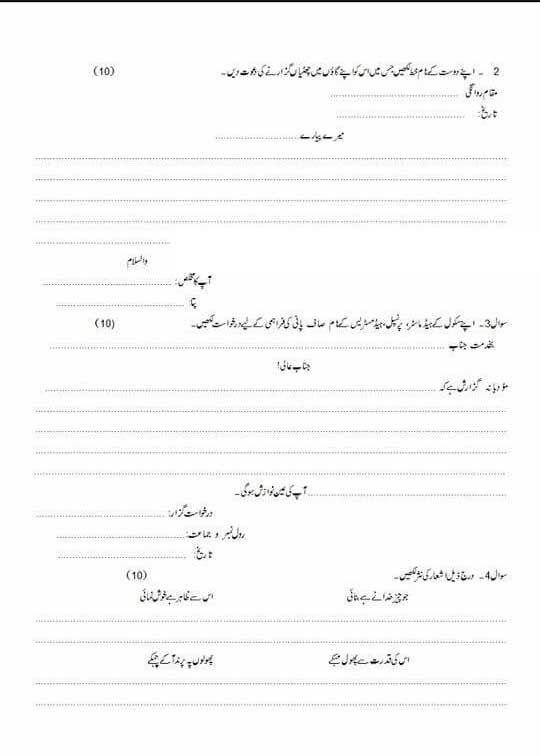 2 ۔ اپنے دوست کے نام خط لکھیں جس میں اس کو اپنے گاؤں میں چھٹیاں گزارنے کی دعوت دیں۔ (10)
مقام روانگی ........................................
تاریخ: ........................................
میرے پیارے............................
................................................................................
................................................................................
................................................................................
................................................................................
........................................
والسلام
آپ کا مخلص: ........................................
پتا: ........................................
سوال 3۔ اپنے سکول کے ہیڈ ماسٹر، پرنسپل، ہیڈ مسٹریس کے نام صاف پانی کی فراہمی کے لیے درخواست لکھیں۔ (10)
بخدمت جناب ................................................................................
جناب عالی!
مؤدبانہ گزارش ہے کہ ................................................................................
................................................................................
................................................................................
................................................................................
................................................................................
............................................................ آپ کی عین نوازش ہوگی۔
درخواست گزار: ........................................
رول نمبر و جماعت: ........................................
تاریخ: ........................................
سوال 4۔ درج ذیل اشعار کی نثر لکھیں۔ (10)
جو چیز خدا نے ہے بنائی اس سے ظاہر ہے خوش نمائی
................................................................................
................................................................................
اس کی قدرت سے پھول مہکے پھولوں پہ پرند آ کے چہکے
................................................................................
................................................................................